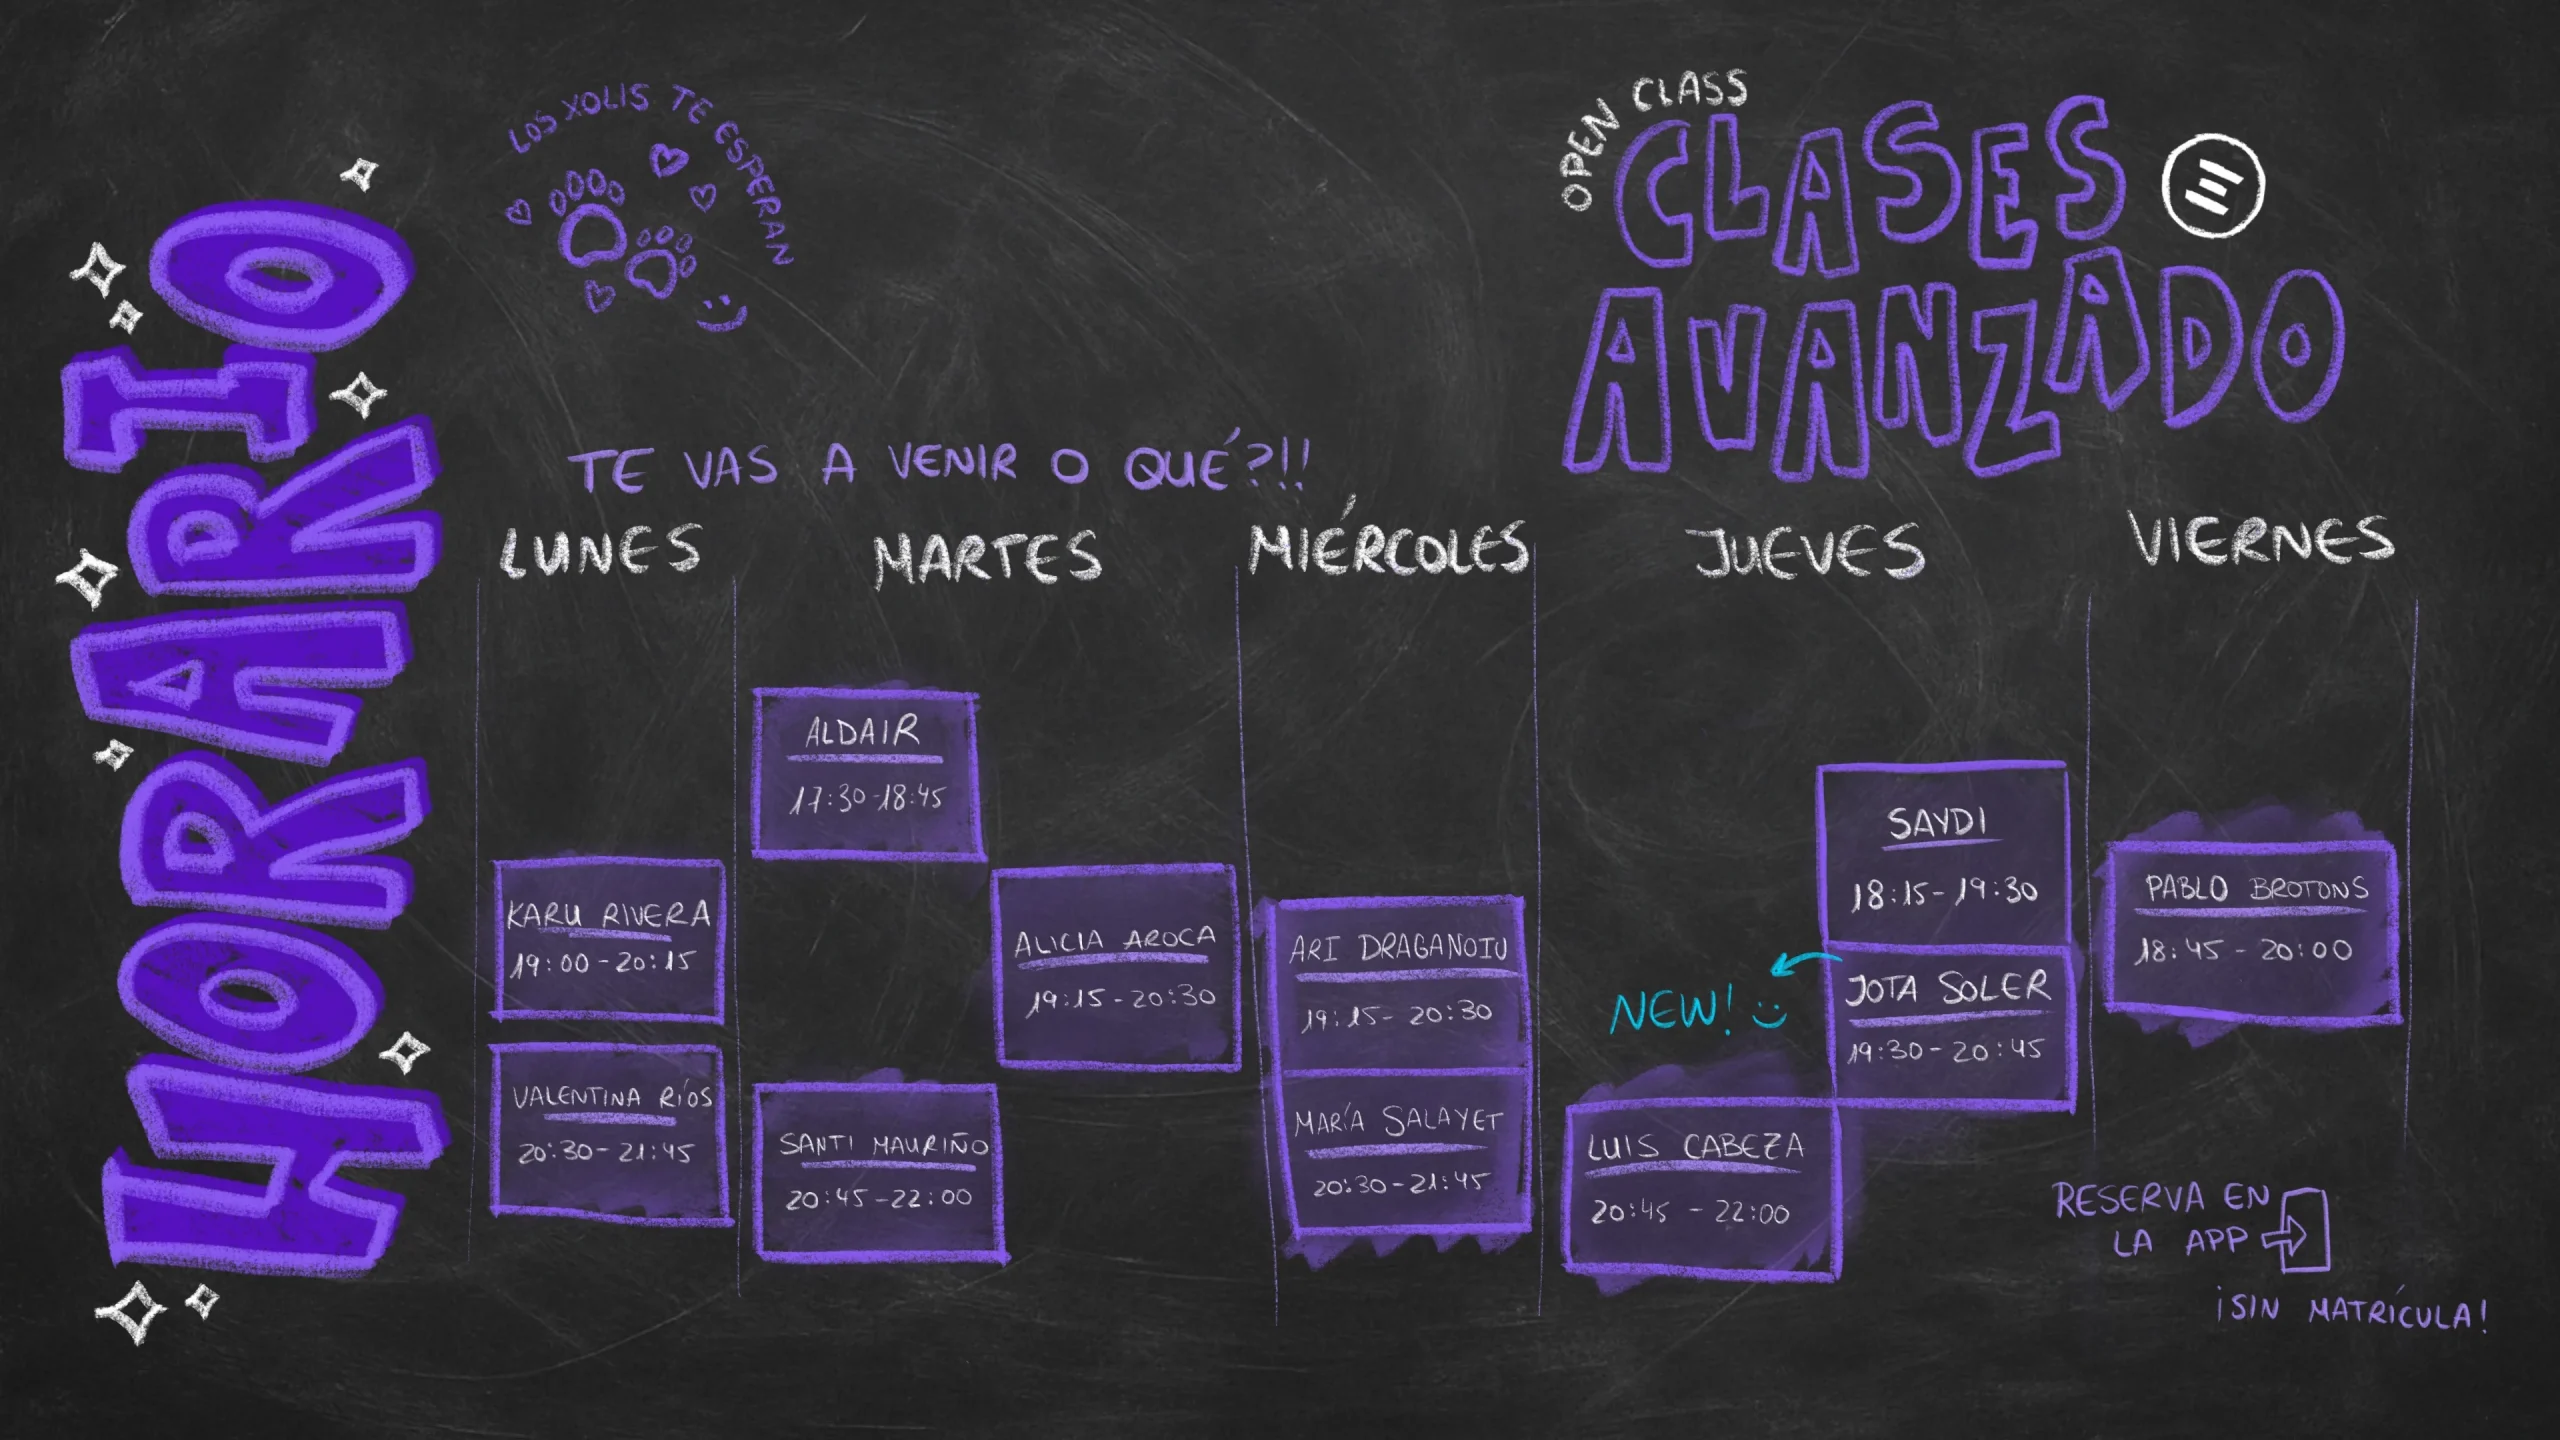 HORARIO
LOS XOLIS TE ESPERAN
OPEN CLASS
CLASES
AVANZADO
TE VAS A VENIR O QUÉ?!!
LUNES
KARU RIVERA
19:00-20:15
VALENTINA RÍOS
20:30-21:45
MARTES
ALDAIR
17:30-18:45
ALICIA AROCA
19:15-20:30
SANTI MAURIÑO
20:45-22:00
MIÉRCOLES
ARI DRAGANOIU
19:15-20:30
MARÍA SALAYET
20:30-21:45
JUEVES
SAYDI
18:15-19:30
JOTA SOLER
19:30-20:45
NEW! :)
LUIS CABEZA
20:45-22:00
VIERNES
PABLO BROTONS
18:45-20:00
RESERVA EN
LA APP
¡SIN MATRÍCULA!